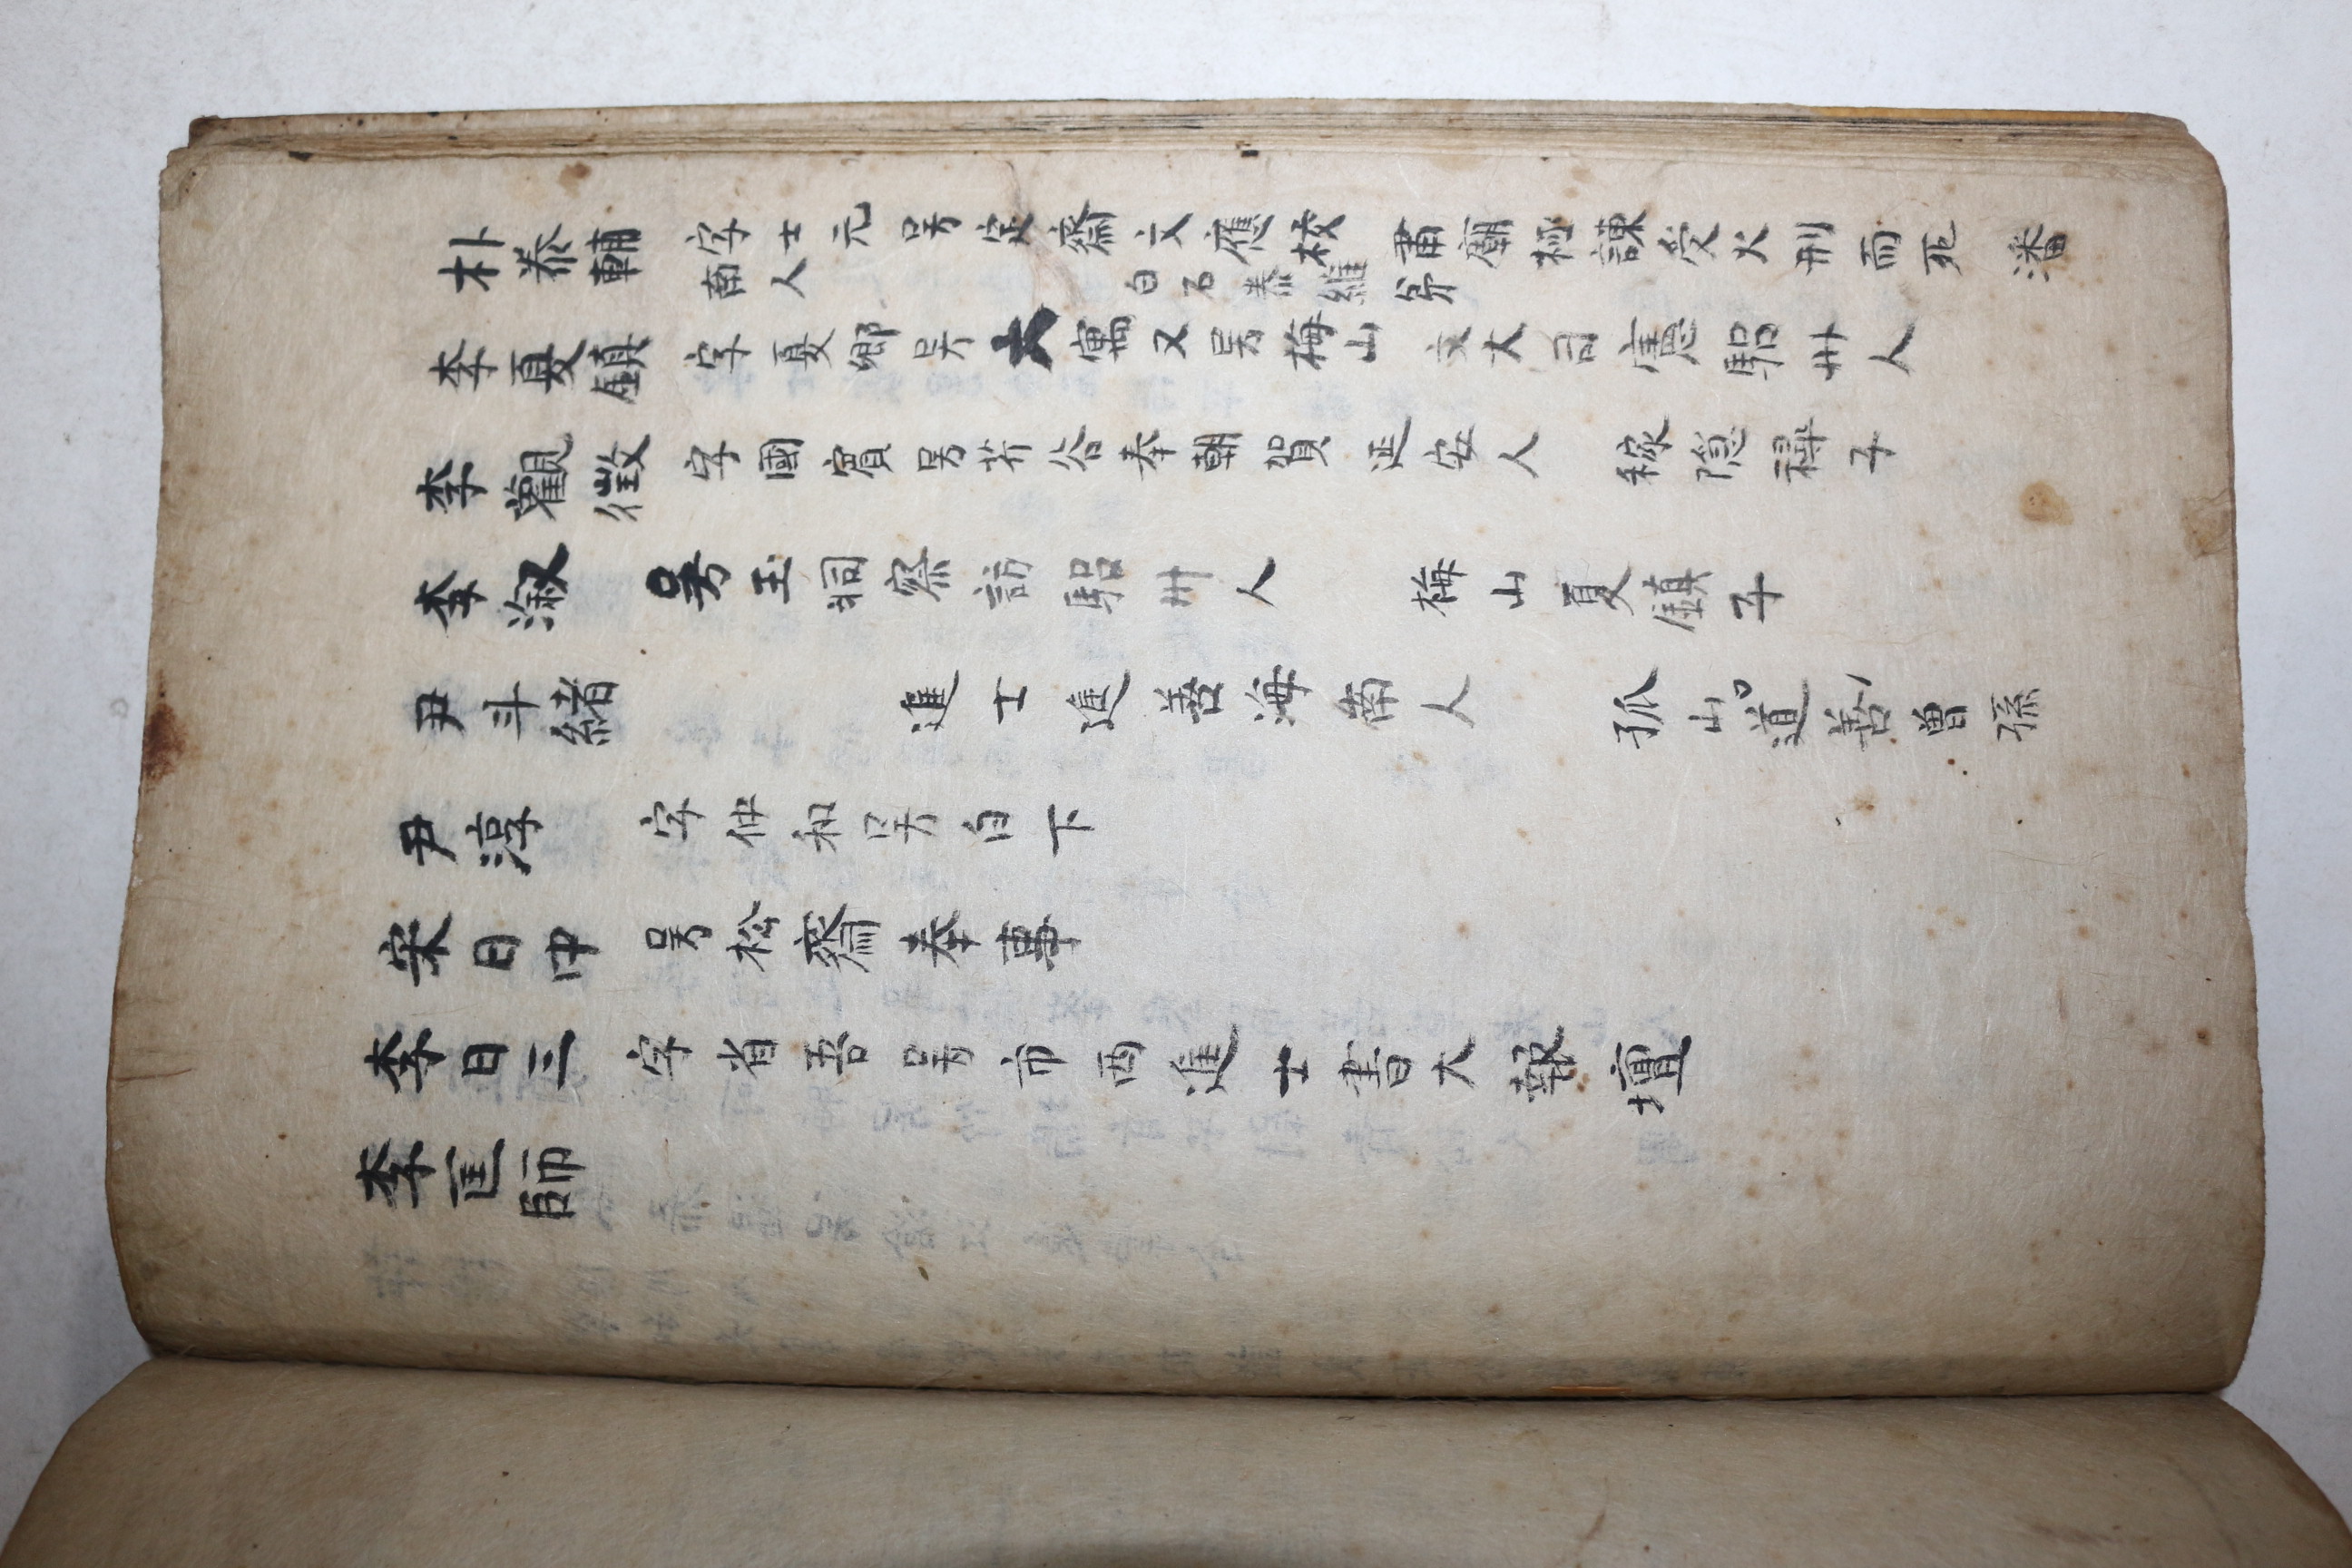 朴泰輔 字士元号定齋文應校 肅廟極諫受火刑而死 潘
南人 白石泰維弟
李夏鎭 字夏卿号六寓又号梅山 文大司憲驪州人
李觀徵 字國賓号芹谷奉朝賀延安人 稼隱禫子
李漵 号玉洞察訪驪州人 梅山夏鎭子
尹斗緖 進士進善海南人 孤山道善曾孫
尹淳 字仲和号白下
宋日中 号松齋奉事
李日三 字省吾号市西進士書大報壇
李匡師